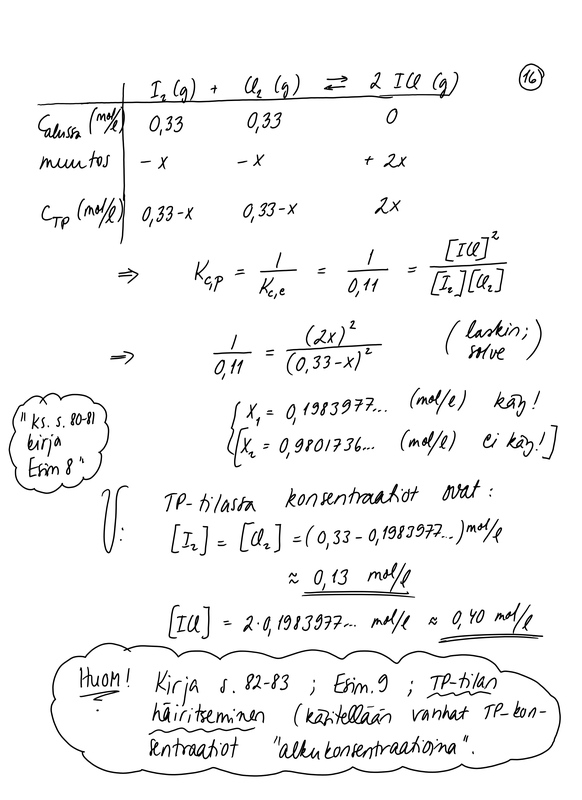 16
I₂ (g) + Cl₂ (g) ⇌ 2 ICl (g)
C_alussa (mol/l) 0,33 0,33 0
muutos - x - x + 2x
C_TP (mol/l) 0,33-x 0,33-x 2x
⇒ K_c,p = 1/K_c,e = 1/0,11 = [ICl]²/[I₂][Cl₂]
⇒ 1/0,11 = (2x)²/(0,33-x)² (laskin; solve)
{ x₁ = 0,1983977... (mol/l) käy!
[x₂ = 0,9801736... (mol/l) ei käy!]
"ks. s. 80-81
kirja
Esim 8"
V: TP-tilassa konsentraatiot ovat:
[I₂] = [Cl₂] = (0,33 - 0,1983977...) mol/l
≈ 0,13 mol/l
[ICl] = 2·0,1983977... mol/l ≈ 0,40 mol/l
HUOM! Kirja s. 82-83 ; Esim. 9 ; TP-tilan
häiritseminen (käsitellään vanhat TP-kon-
sentraatiot "alkukonsentraatioina".